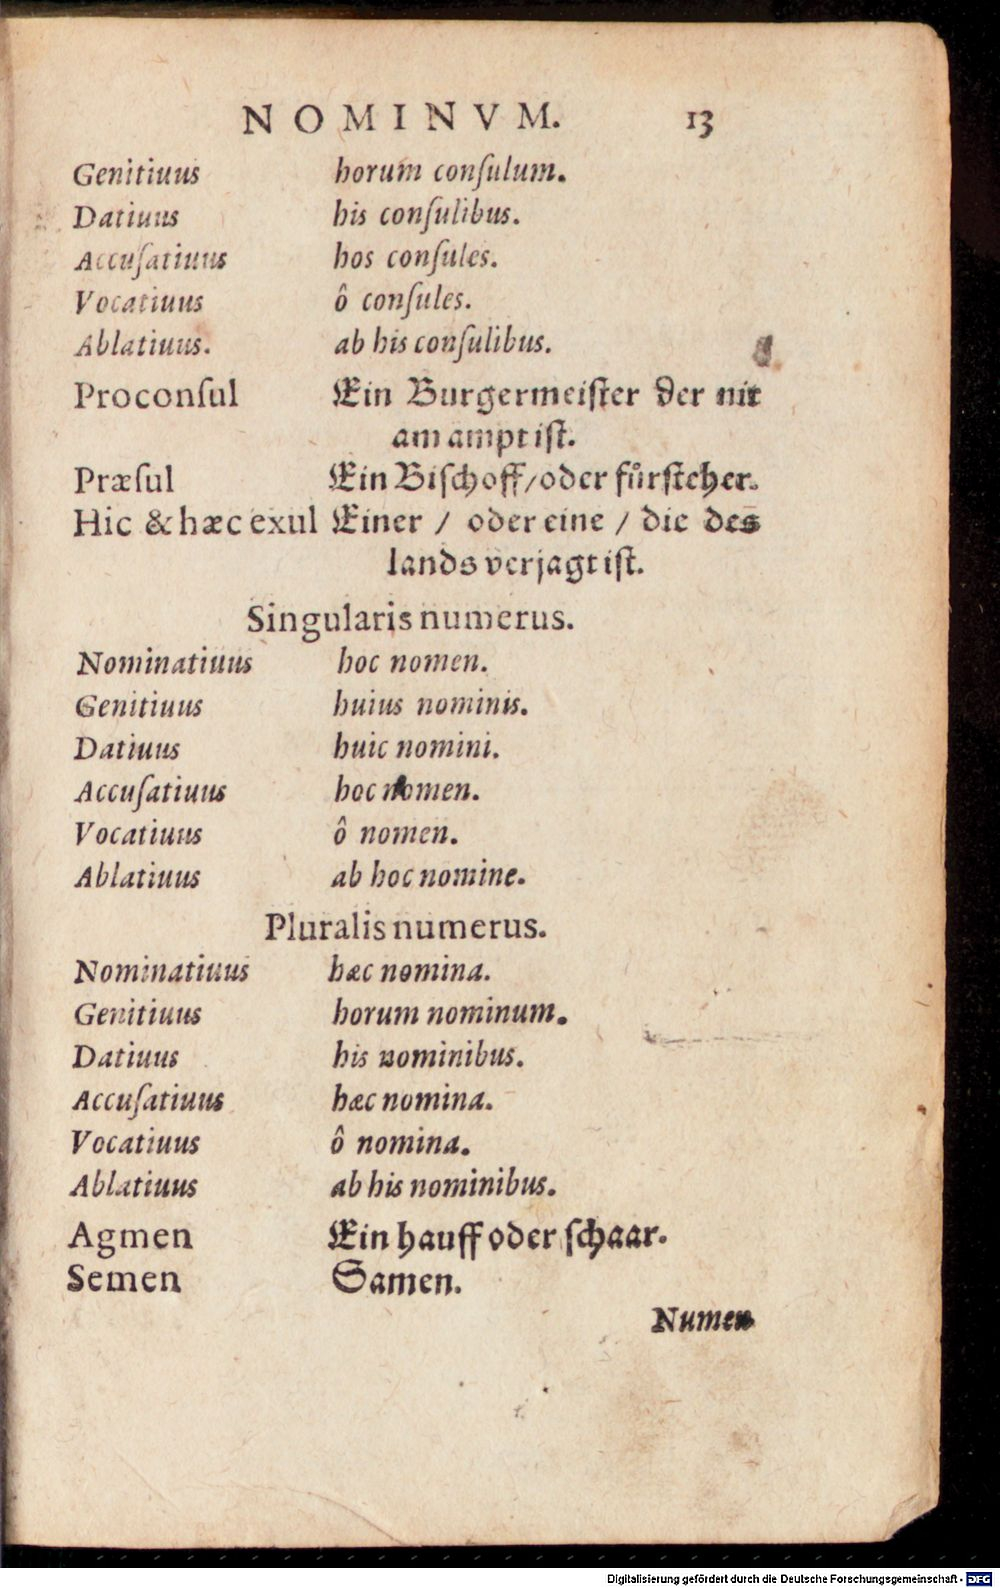 NOMINVM. 13
Genitiuus horum conſulum.
Datiuus his conſulibus.
Accuſatiuus hos conſules.
Vocatiuus ô conſules.
Ablatiuus. ab his conſulibus.
Proconſul Ein Burgermeiſter der nit
am ampt iſt.
Præſul Ein Biſchoff/oder fuͤrſteher.
Hic & hæc exul Einer / oder eine / die des
lands verjagt iſt.
Singularis numerus.
Nominatiuus hoc nomen.
Genitiuus huius nominis.
Datiuus huic nomini.
Accuſatiuus hoc nomen.
Vocatiuus ô nomen.
Ablatiuus ab hoc nomine.
Pluralis numerus.
Nominatiuus hæc nomina.
Genitiuus horum nominum.
Datiuus his nominibus.
Accuſatiuus hæc nomina.
Vocatiuus ô nomina.
Ablatiuus ab his nominibus.
Agmen Ein hauff oder ſchaar.
Semen Samen.
Numen
Digitalisierung gefördert durch die Deutsche Forschungsgemeinschaft - DFG